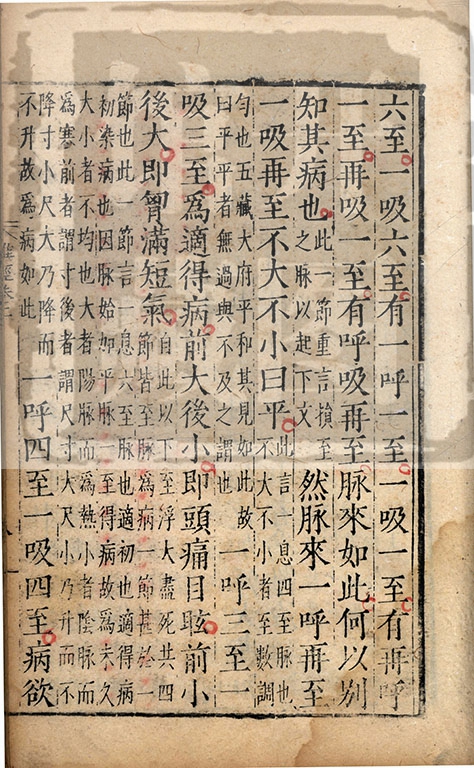 六至一吸六至有一呼一至一吸一至有再呼
一至再吸一至有呼吸再至脈來如此何以別
知其病也此一節重言損至
之脈以起下文然脈來一呼再至
一吸再至不大不小曰平此言一息四至脈也
不大不小者至數調
匀也五藏大府平和其見如此故
曰平平者無過與不及之謂也一呼三至一
吸三至爲適得病前大後小即頭痛目眩前小
後大即胷滿短氣自此以下至浮大盡死共四
節皆至脈爲病一節甚於一
節也此一節言一息六至脈也適初也適得病
初染病也因脈始如平脈一至得病故爲未久
大小者不均也大者陽脈而爲熱小者陰脈而
爲寒前者謂寸後者謂尺寸大尺小乃升而不
降寸小尺大乃降而
不升故爲病如此一呼四至一吸四至病欲